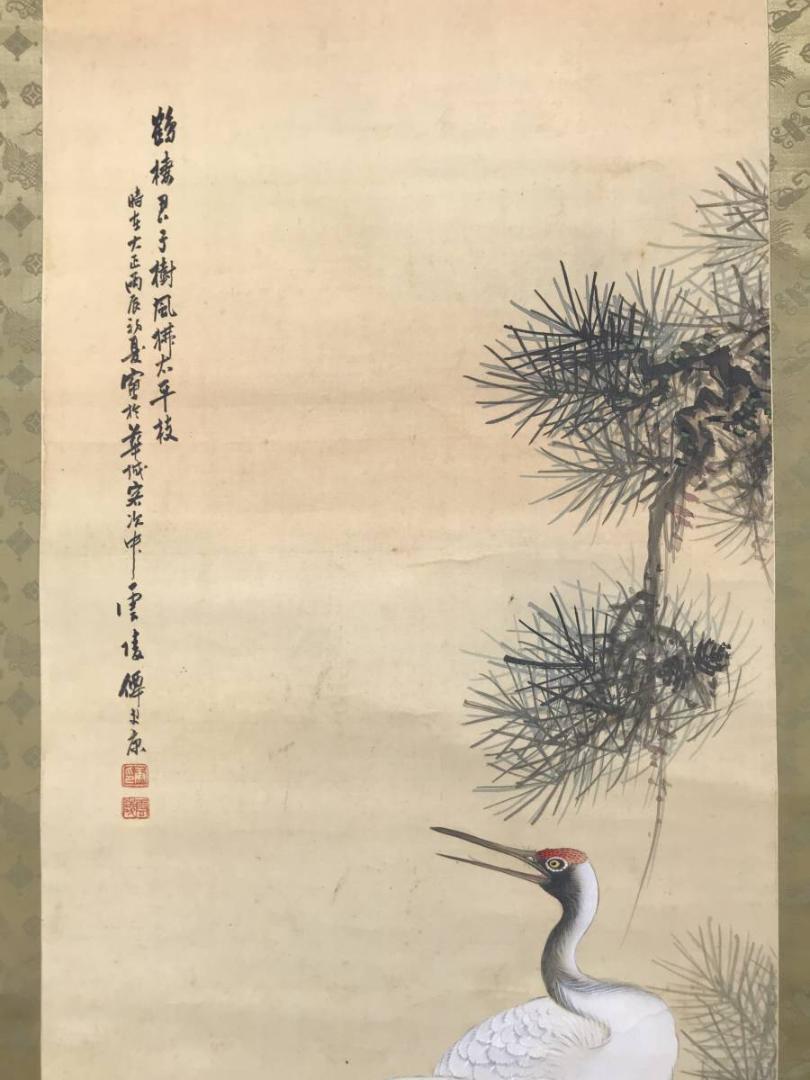 鶴棲君子樹風拂太平枝
時在大正丙辰初夏寫於華城客次中雲陵